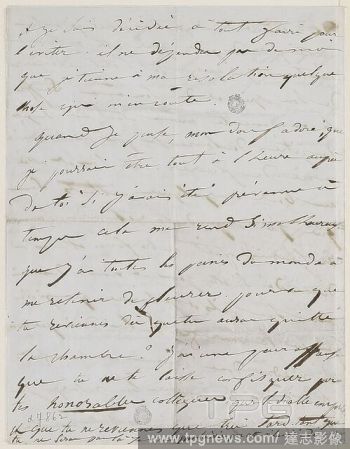 je suis décidée à tout faire pour
l'éviter. il ne dépendra pas de moi
que je tienne à ma résolution quelque
chose que m'en coute.
quand je pense, mon doux adoré, que
je pourrais être tout à l'heure auprès
de toi si j'avais été prévenue à
temps cela me rend si malheureuse
que j'ai toutes les peines du monde à
me retenir de pleurer pourvu que
tu reviennes dès que tu auras quitté
la chambre? j'ai une peur
que tu ne te laisse confisquer par
tes honorables collègues
que tu ne reviennes que très tard
TPG
www.tpgnews.com 達志影像